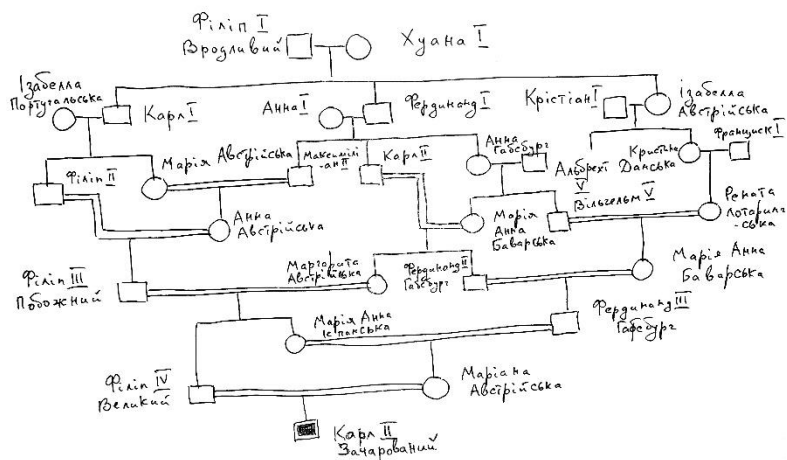 Філіп I
Вродливий
Хуана I
Ізабелла
Португальська
Карл I
Анна I
Фердинанд I
Крістіан I
ізабелла
Австрійська
Філіп II
Марія Австрійська
Максимілі
-ан II
Карл II
Анна
Габсбург
Альбрехт
V
Кристіна
Данська
Франциск I
Анна
Австрійська
Марія
Анна
Баварська
Вільгельм V
Рената
Лотаринг
-ська
Філіп III
Побожний
Маргарита
Австрійська
Фердинанд II
Габсбург
Марія Анна
Баварська
Марія Анна
Іспанська
Фердинанд III
Габсбург
Філіп IV
Великий
Маріана
Австрійська
Карл II
Зачарований